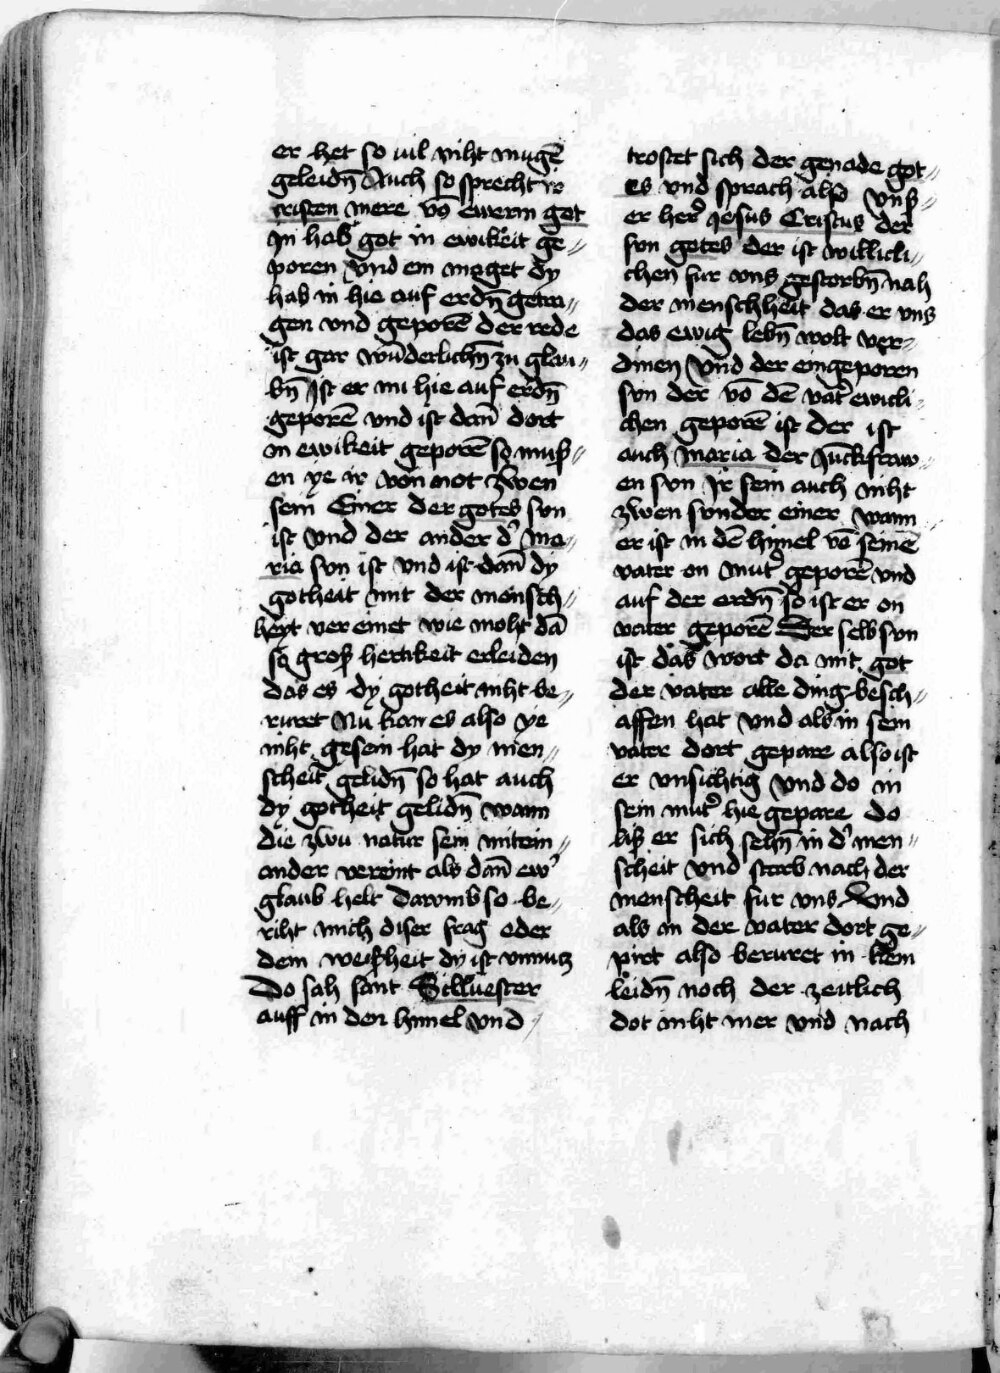 er het so uil niht mugē
geleidn̄ Auch so sprecht ir
cristen mere vō ewerm got
In hab got in ewikeit ge„
poren Vnd ein maget dy
hab in hie auf erdn̄ getra„
gen vnd geporē der rede
ist gar wūderlichn̄ zu glau„
bn̄ Ist er nu hie auf erdn̄
geporē vnd ist dan̄ dort
in ewikeit geporē so muß„
en ye ir von not zwen
sein Einer der gotes sun
ist vnd der ander d' ma„
ria sun ist vnd ist dan̄ dy
gotheit mit der mensch„
heyt vereinet wie moht dā
so groß hertikeit erleiden
das es dy gotheit niht be„
ruret Nu kan es also ye
niht gesein hat dy men„
scheit gelidn̄ so hat auch
dy gotheit gelidn̄ wann
die zwu natur sein mitein„
ander vereint als dan̄ ew'
glaub helt Darumb so be„
riht mich diser frag oder
dein weißheit dy ist vnnutz
Do sah sant Silluester
auff in den himel vnd
trostet sich der genade got„
es vnd sprach also vnß„
er her' Jesus Cristus der
sun gotes der ist willicli„
chen fur vns gestorbn̄ nah
der menschheit das er vns
das ewig lebn̄ wolt ver„
dinen Vnd der eingeporen
sun der vō dē vat' ewicli„
chen geporē ist der ist
auch maria der Juckfraw„
en sun Ir sein auch niht
zwen sunder einer wann
er ist in dē himel vō seinē
vater on mut' geporē vnd
auf der erdn̄ so ist er on
vater geporē Der selb sun
ist das wort da mit got
der vater alle ding besch„
affen hat vnd als in sein
vater dort gepare also ist
er vnsichtig vnd do in
sein mut' hie gepare do
liß er sich sehn̄ in d' men„
scheit vnd starb nach der
menscheit fur vns Vnd
als in der vater dort ge„
pirt also beruret in kein
leidn̄ noch der zeitlich
dot niht mer vnd nach